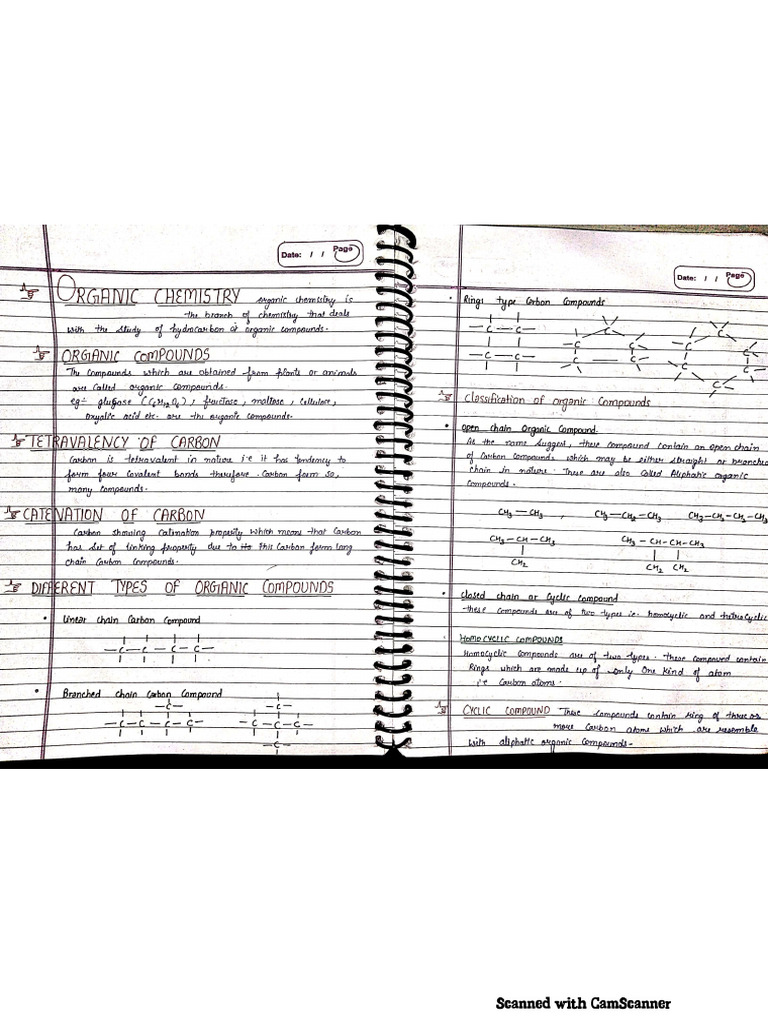 Date: / /
Page
ORGANIC CHEMISTRY organic chemistry is
the branch of chemistry that deals
with the study of hydrocarbon or organic compounds.
ORGANIC COMPOUNDS
The compounds which are obtained from plants or animals
are called organic compounds.
eg:- (C6H12O6), fructose, maltose, cellulose,
oxyalic acid etc. are the organic compounds.
TETRAVALENCY OF CARBON
Carbon is tetravalent in nature i.e it has tendency to
form four covalent bonds therefore. Carbon form so,
many compounds.
CATENATION OF CARBON
Carbon showing property which means that Carbon
has of linking property due to this Carbon form long
chain Carbon Compounds.
DIFFERENT TYPES OF ORGANIC COMPOUNDS
• Linear Chain Carbon Compound
—C—C—C—C—
• Branched Chain Carbon Compound
—C— —C—
—C—C—C—C— —C—C—C—
—C—
Date: / /
Page
• Rings type Carbon Compounds
—C—C— C C C C
—C—C— C C C C C C
Classification of organic Compounds
• Open chain Organic Compound.
As the name suggest, these compound contain an open chain
of Carbon compounds which may be either straight or branched
chain in nature. These are also called Aliphatic organic
Compounds.
CH3—CH3 , CH3—CH2—CH3 CH3—CH2—CH2—CH3
CH3—CH—CH3 CH3—CH—CH—CH3
CH2 CH2 CH2
• Closed chain or Cyclic Compound
these compounds are of two types i.e. homocyclic and hetrocyclic
HOMOCYCLIC COMPOUNDS
Homocyclic Compounds are of two types. These compound contain
Rings which are made up of only One kind of atom
i.e Carbon atoms.
CYCLIC COMPOUND These Compounds contain ring of three or
more Carbon atoms which are resemble
with aliphatic organic Compounds.
Scanned with CamScanner